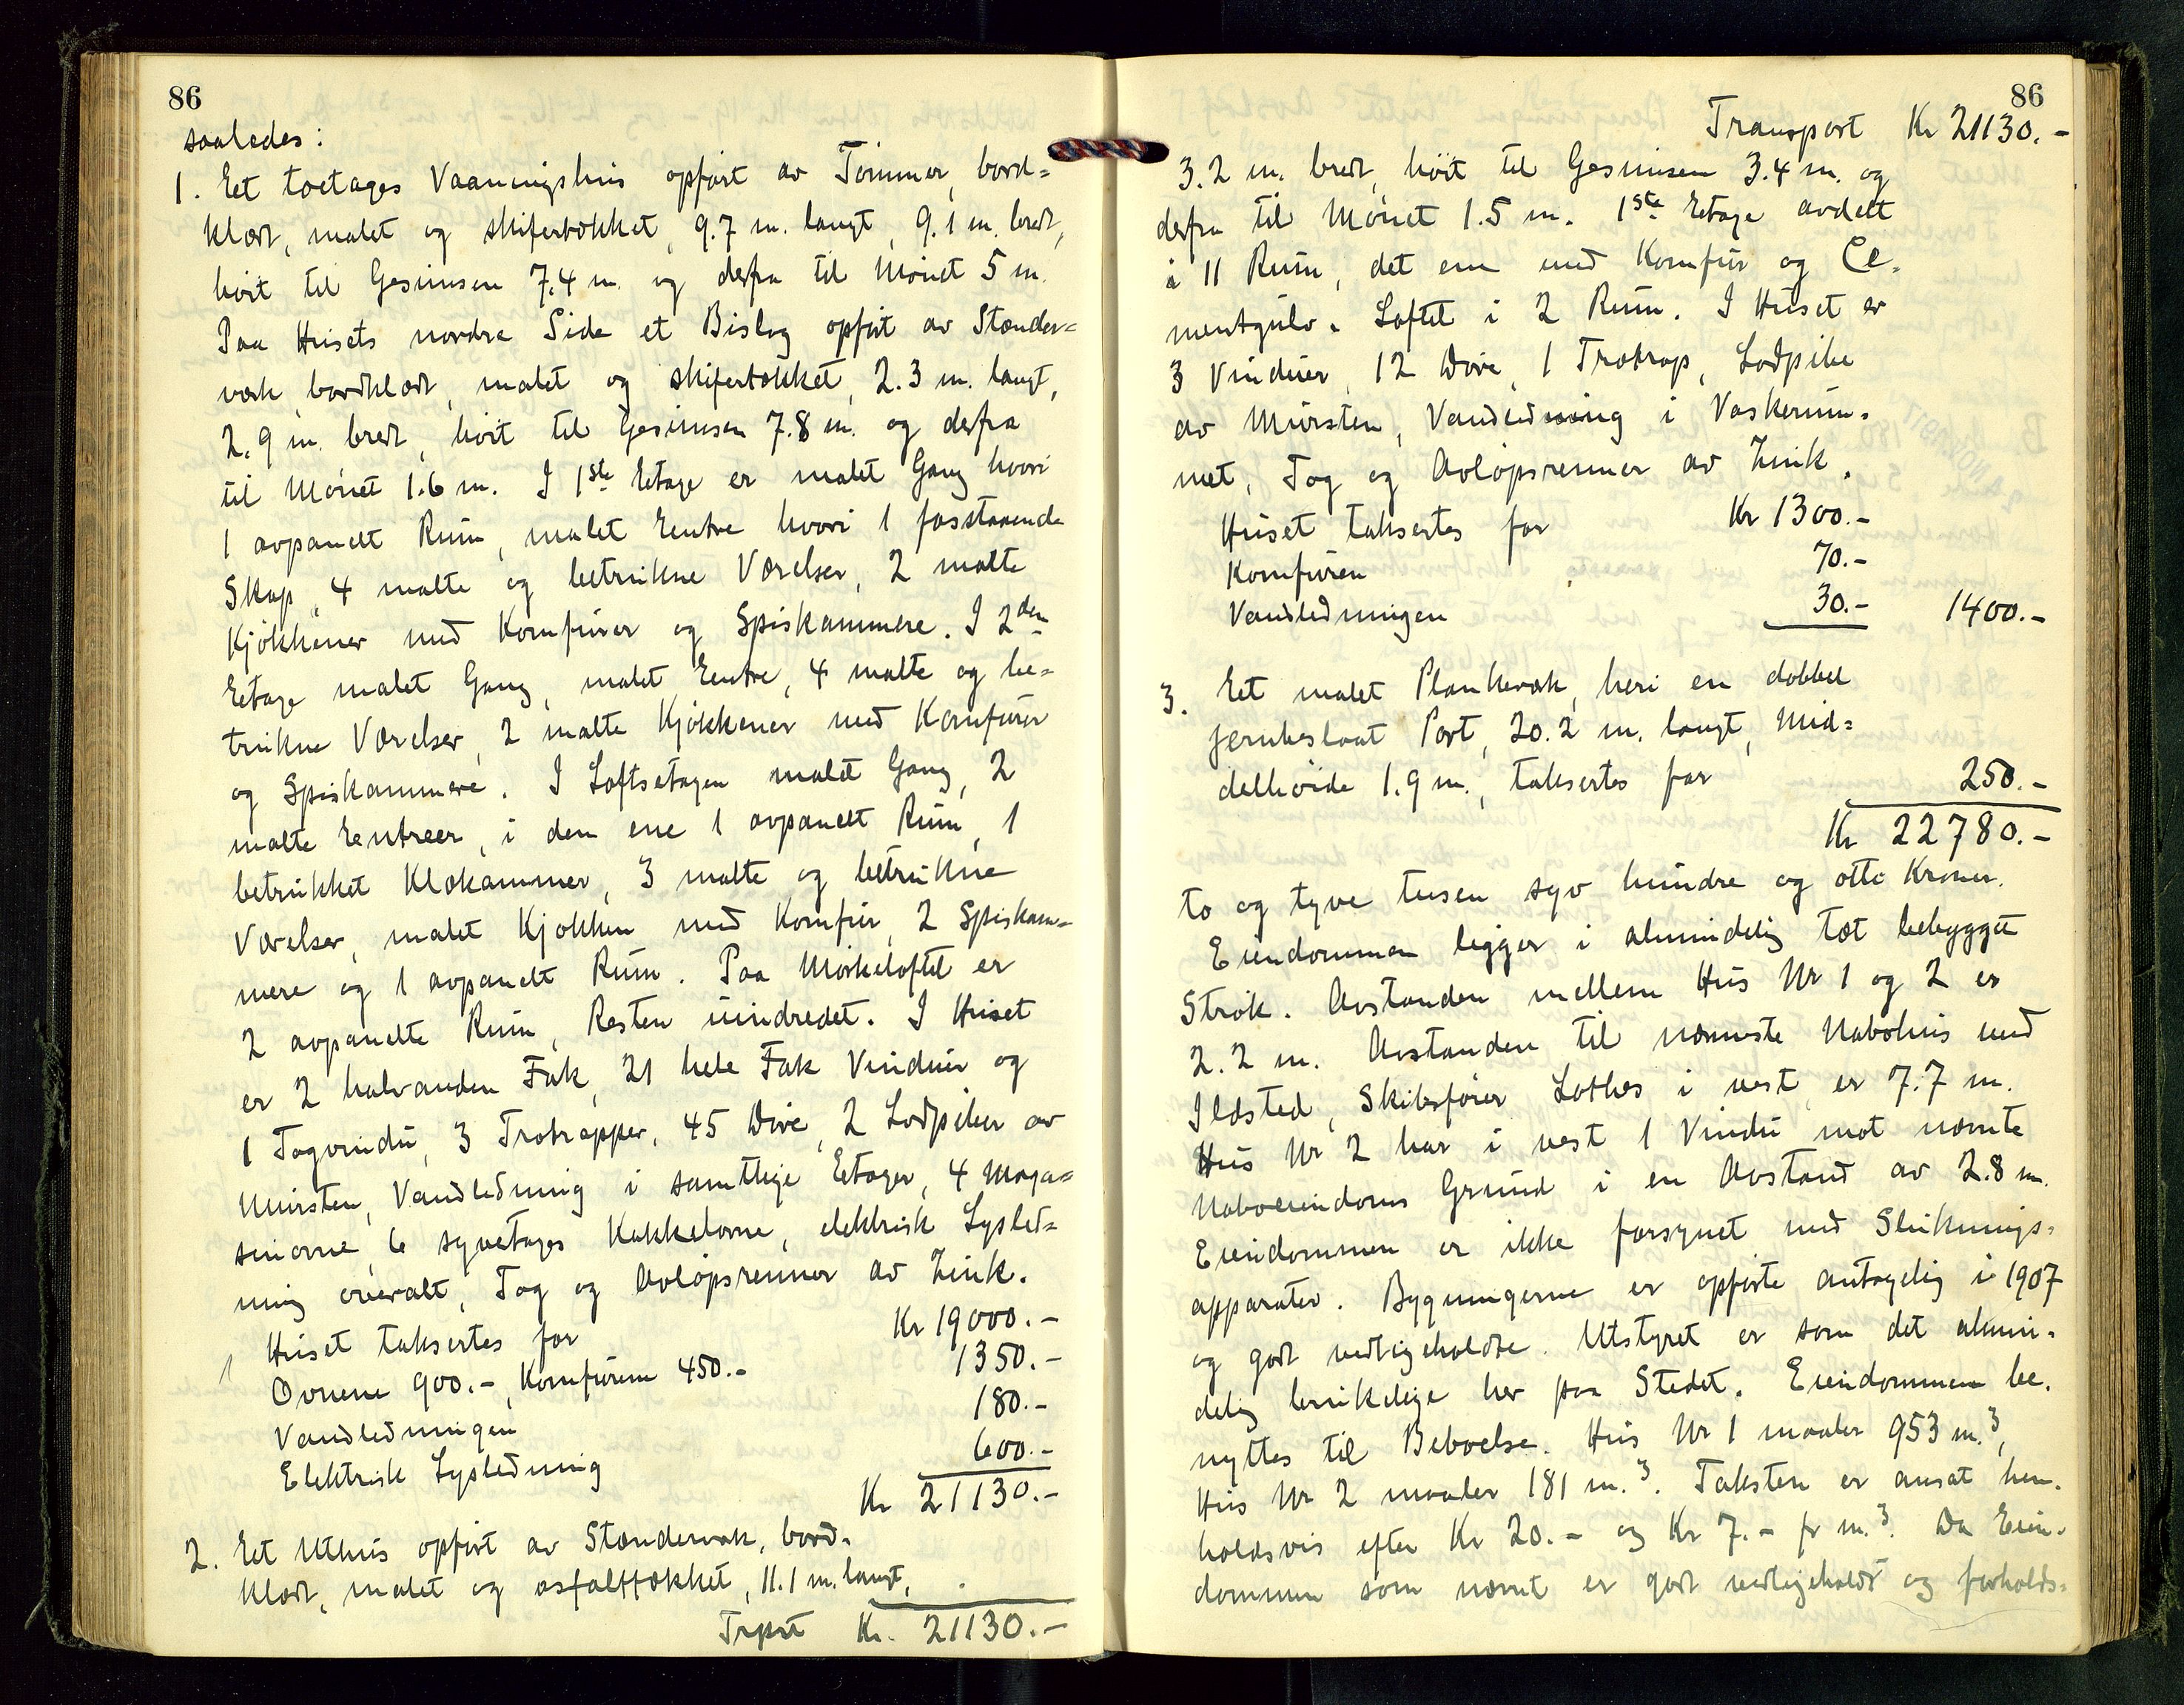 86
saaledes:
1. Eet toetages Vaaningshus opført av Tømmer, bord=
klædt, malet og skifertækket, 9.7 m. langt, 9.1 m. bredt,
høit til Gesimsen 7.4 m. og derfra til Mønet 5 m.
Paa Husets nordre Side et Bislag opført av Stænder=
værk, bordklædt, malet og skifertækket, 2.3 m. langt,
2.9 m. bredt, høit til Gesimsen 7.8 m. og derfra
til Mønet 1.6 m. I 1ste Etage er malet Gang hvori
1 avpanelt Rum, malet Entre hvori 1 fasstaaende
Skap, 4 malte og betrukne Værelser, 2 malte
Kjøkkener med Komfurer og Spiskammere. I 2den
Etage malet Gang, malet Entre, 4 malte og be=
trukne Værelser, 2 malte Kjøkkener med Komfurer
og Spiskammere. I Loftsetagen malet Gang, 2
malte Entreer, i den ene 1 avpanelt Rum, 1
betrukket Klækammer, 3 malte og betrukne
Værelser, malet Kjøkken med Komfur, 2 Spiskam=
mere og 1 avpanelt Rum. Paa Mørkeloftet er
2 avpanelte Rum, Resten uindredet. I Huset
er 2 halvanden Fak, 21 hele Fak Vinduer og
1 Tagvindu, 3 Trætrapper, 45 Døre, 2 Lodpiber av
Mursten, Vandledning i samtlige Etager, 4 Maga=
sinovne, 6 syvetages Kakkelovne, elektrisk Lysled=
ning overalt, Tag og Avløpsrenner av Zink.
Huset taksertes for Kr 19000.-
Ovnene 900.-, Komfurene 450.- 1350.-
Vandledningen 180.-
Elektrisk Lysledning 600.-
Kr 21130.-
2. Eet Uthus opført av Stændervæk, bord-
klædt, malet og asfalttækket, 11.1 m. langt,
Trpst Kr. 21130.-
86
Transport Kr 21130.-
3.2 m. bredt, høit til Gesimsen 3.4 m. og
derfra til Mønet 1.5 m. 1ste Etage avdelt
i 11 Rum, det ene med Komfur og Ce-
mentgulv. Loftet i 2 Rum. I Huset er
3 Vinduer, 12 Døre, 1 Trætrap, Lodpibe
av Mursten, Vandledning i Vaskerum-
met, Tag og Avløpsrenner av Zink.
Huset taksertes for Kr 1300.-
Komfuren 70.-
Vandledningen 30.- 1400.-
3. Eet malet Plankeværk, heri en dobbel
jernbeslaat Port, 20.2 m. langt, Mid=
delhøide 1.9 m., taksertes for 250.-
Kr 22780.-
to og tyve tusen syv hundre og otti Kroner.
Eiendommen ligger i almindelig tæt bebygget
Strøk. Avstanden mellem Hus Nr 1 og 2 er
2.2 m. Avstanden til nærmeste Nabohus med
Ildsted, Skibsfører Lothes i vest er 7.7 m.
Hus Nr 2 har i vest 1 Vindu mot nævnte
Naboeiendoms Grund i en Avstand av 2.8 m.
Eiendommen er ikke forsynet med Sluknings-
apparater. Bygningerne er opførte antagelig i 1907
og godt vedligeholdte. Utstyret er som det almin-
delig brukelige her paa Stedet. Eiendommen be-
nyttes til Beboelse. Hus Nr 1 maaler 953 m.3,
Hus Nr 2 maaler 181 m.3. Taksten er ansat hen-
holdsvis efter Kr 20.- og Kr 7.- pr m.3. Da Eien-
dommen som nævnt er godt vedligeholdt og forholds=